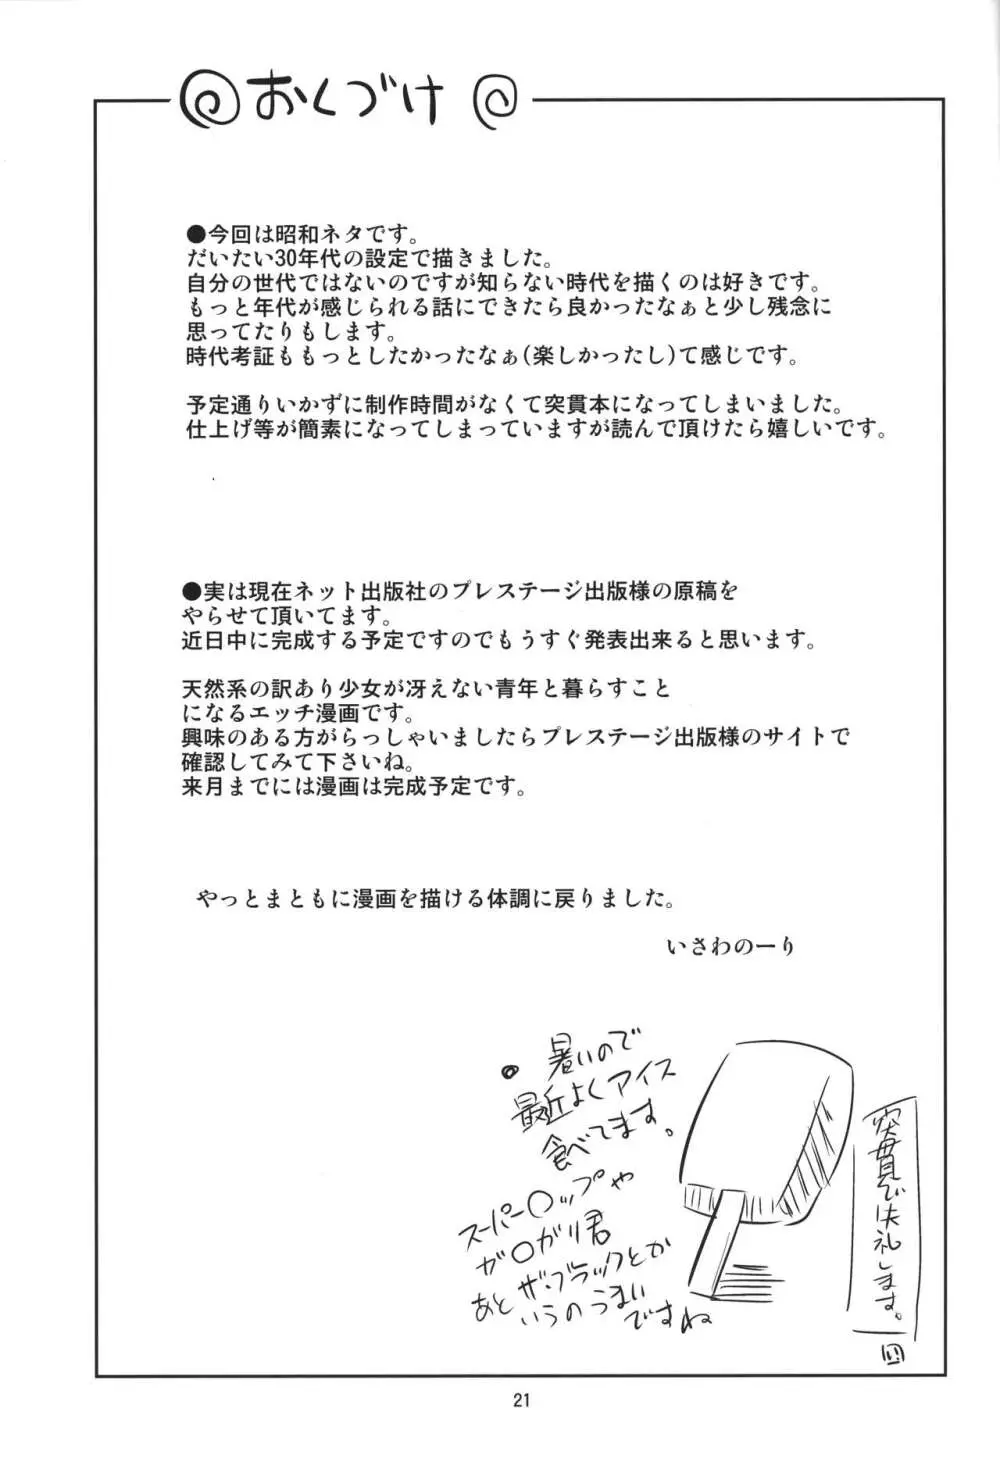 @おくづけ@
●今回は昭和ネタです。
だいたい30年代の設定で描きました。
自分の世代ではないのですが知らない時代を描くのは好きです。
もっと年代が感じられる話にできたら良かったなぁと少し残念に
思ってたりもします。
時代考証ももっとしたかったなぁ(楽しかったし)て感じです。
予定通りいかずに制作時間がなくて突貫本になってしまいました。
仕上げ等が簡素になってしまっていますが読んで頂けたら嬉しいです。
●実は現在ネット出版社のプレステージ出版様の原稿を
やらせて頂いてます。
近日中に完成する予定ですのでもうすぐ発表出来ると思います。
天然系の訳あり少女が冴えない青年と暮らすこと
になるエッチ漫画です。
興味のある方がらっしゃいましたらプレステージ出版様のサイトで
確認してみて下さいね。
来月までには漫画は完成予定です。
やっとまともに漫画を描ける体調に戻りました。
いさわのーり
暑いので
最近よくアイス
食べてます。
スーパー〇ップや
ガ〇ガリ君
あとザ・ブラックとか
いうのうまい
ですね
突貫で失礼します。
21